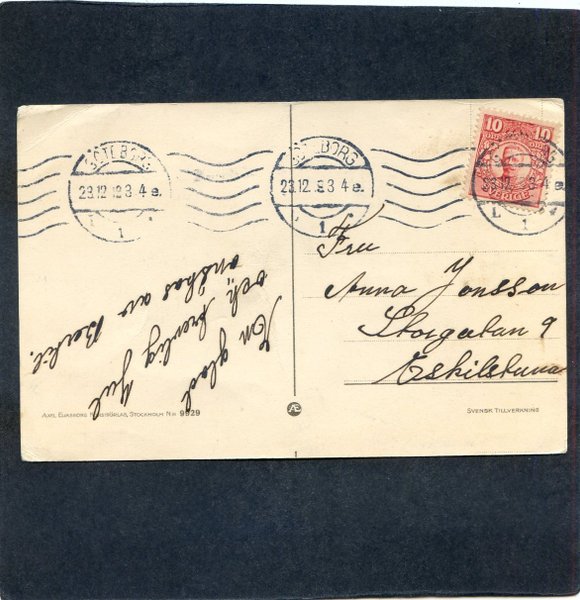 GÖTEBORG
23.12.12 3 4 e.
1
GÖTEBORG
23.12. 3 4 e.
1
10 10
SVERIGE
L 1
Fru
Anna Jonsson
Storgatan 9
Eskilstuna
En glad
och trevlig Jul
önskas av Bertil.
AXEL ELIASSONS KONSTFÖRLAG, STOCKHOLM. N:o 9929
Æ
SVENSK TILLVERKNING